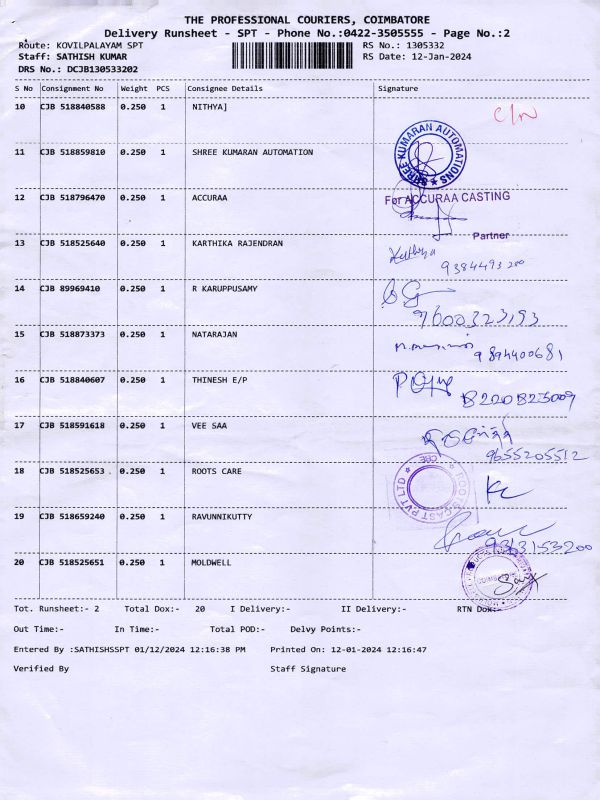 THE PROFESSIONAL COURIERS, COIMBATORE
Delivery Runsheet - SPT - Phone No.:0422-3505555 - Page No.:2
Route: KOVILPALAYAM SPT RS No.: 1305332
Staff: SATHISH KUMAR RS Date: 12-Jan-2024
DRS No.: DCJB130533202
S No Consignment No Weight PCS Consignee Details Signature
10 CJB 518840588 0.250 1 NITHYA]
11 CJB 518859810 0.250 1 SHREE KUMARAN AUTOMATION
SHREE KUMARAN AUTOMATIONS
12 CJB 518796470 0.250 1 ACCURAA
For ACCURAA CASTING
Partner
13 CJB 518525640 0.250 1 KARTHIKA RAJENDRAN
9384493200
14 CJB 89969410 0.250 1 R KARUPPUSAMY
9600323193
15 CJB 518873373 0.250 1 NATARAJAN
9894400681
16 CJB 518840607 0.250 1 THINESH E/P
8220823009
17 CJB 518591618 0.250 1 VEE SAA
9655205512
18 CJB 518525653 . 0.250 1 ROOTS CARE
ROOTS CAST PVT LTD CBE
19 CJB 518659240 0.250 1 RAVUNNIKUTTY
9313153200
20 CJB 518525651 0.250 1 MOLDWELL
Tot. Runsheet:- 2 Total Dox:- 20 I Delivery:- II Delivery:- RTN Dox:-
Out Time:- In Time:- Total POD:- Delvy Points:-
Entered By :SATHISHSSPT 01/12/2024 12:16:38 PM Printed On: 12-01-2024 12:16:47
Verified By Staff Signature